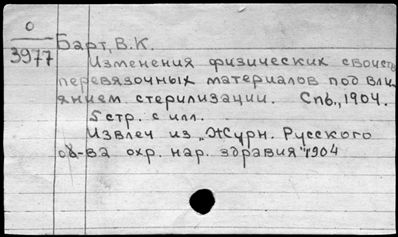 0
3977
Барт, В.К.
Изменения физических свойств
перевязочных материалов под вли-
янием стерилизации. Спб., 1904.
5 стр. с илл.
Извлеч из „Журн. Русского
об-ва охр. нар. здравия" 1904